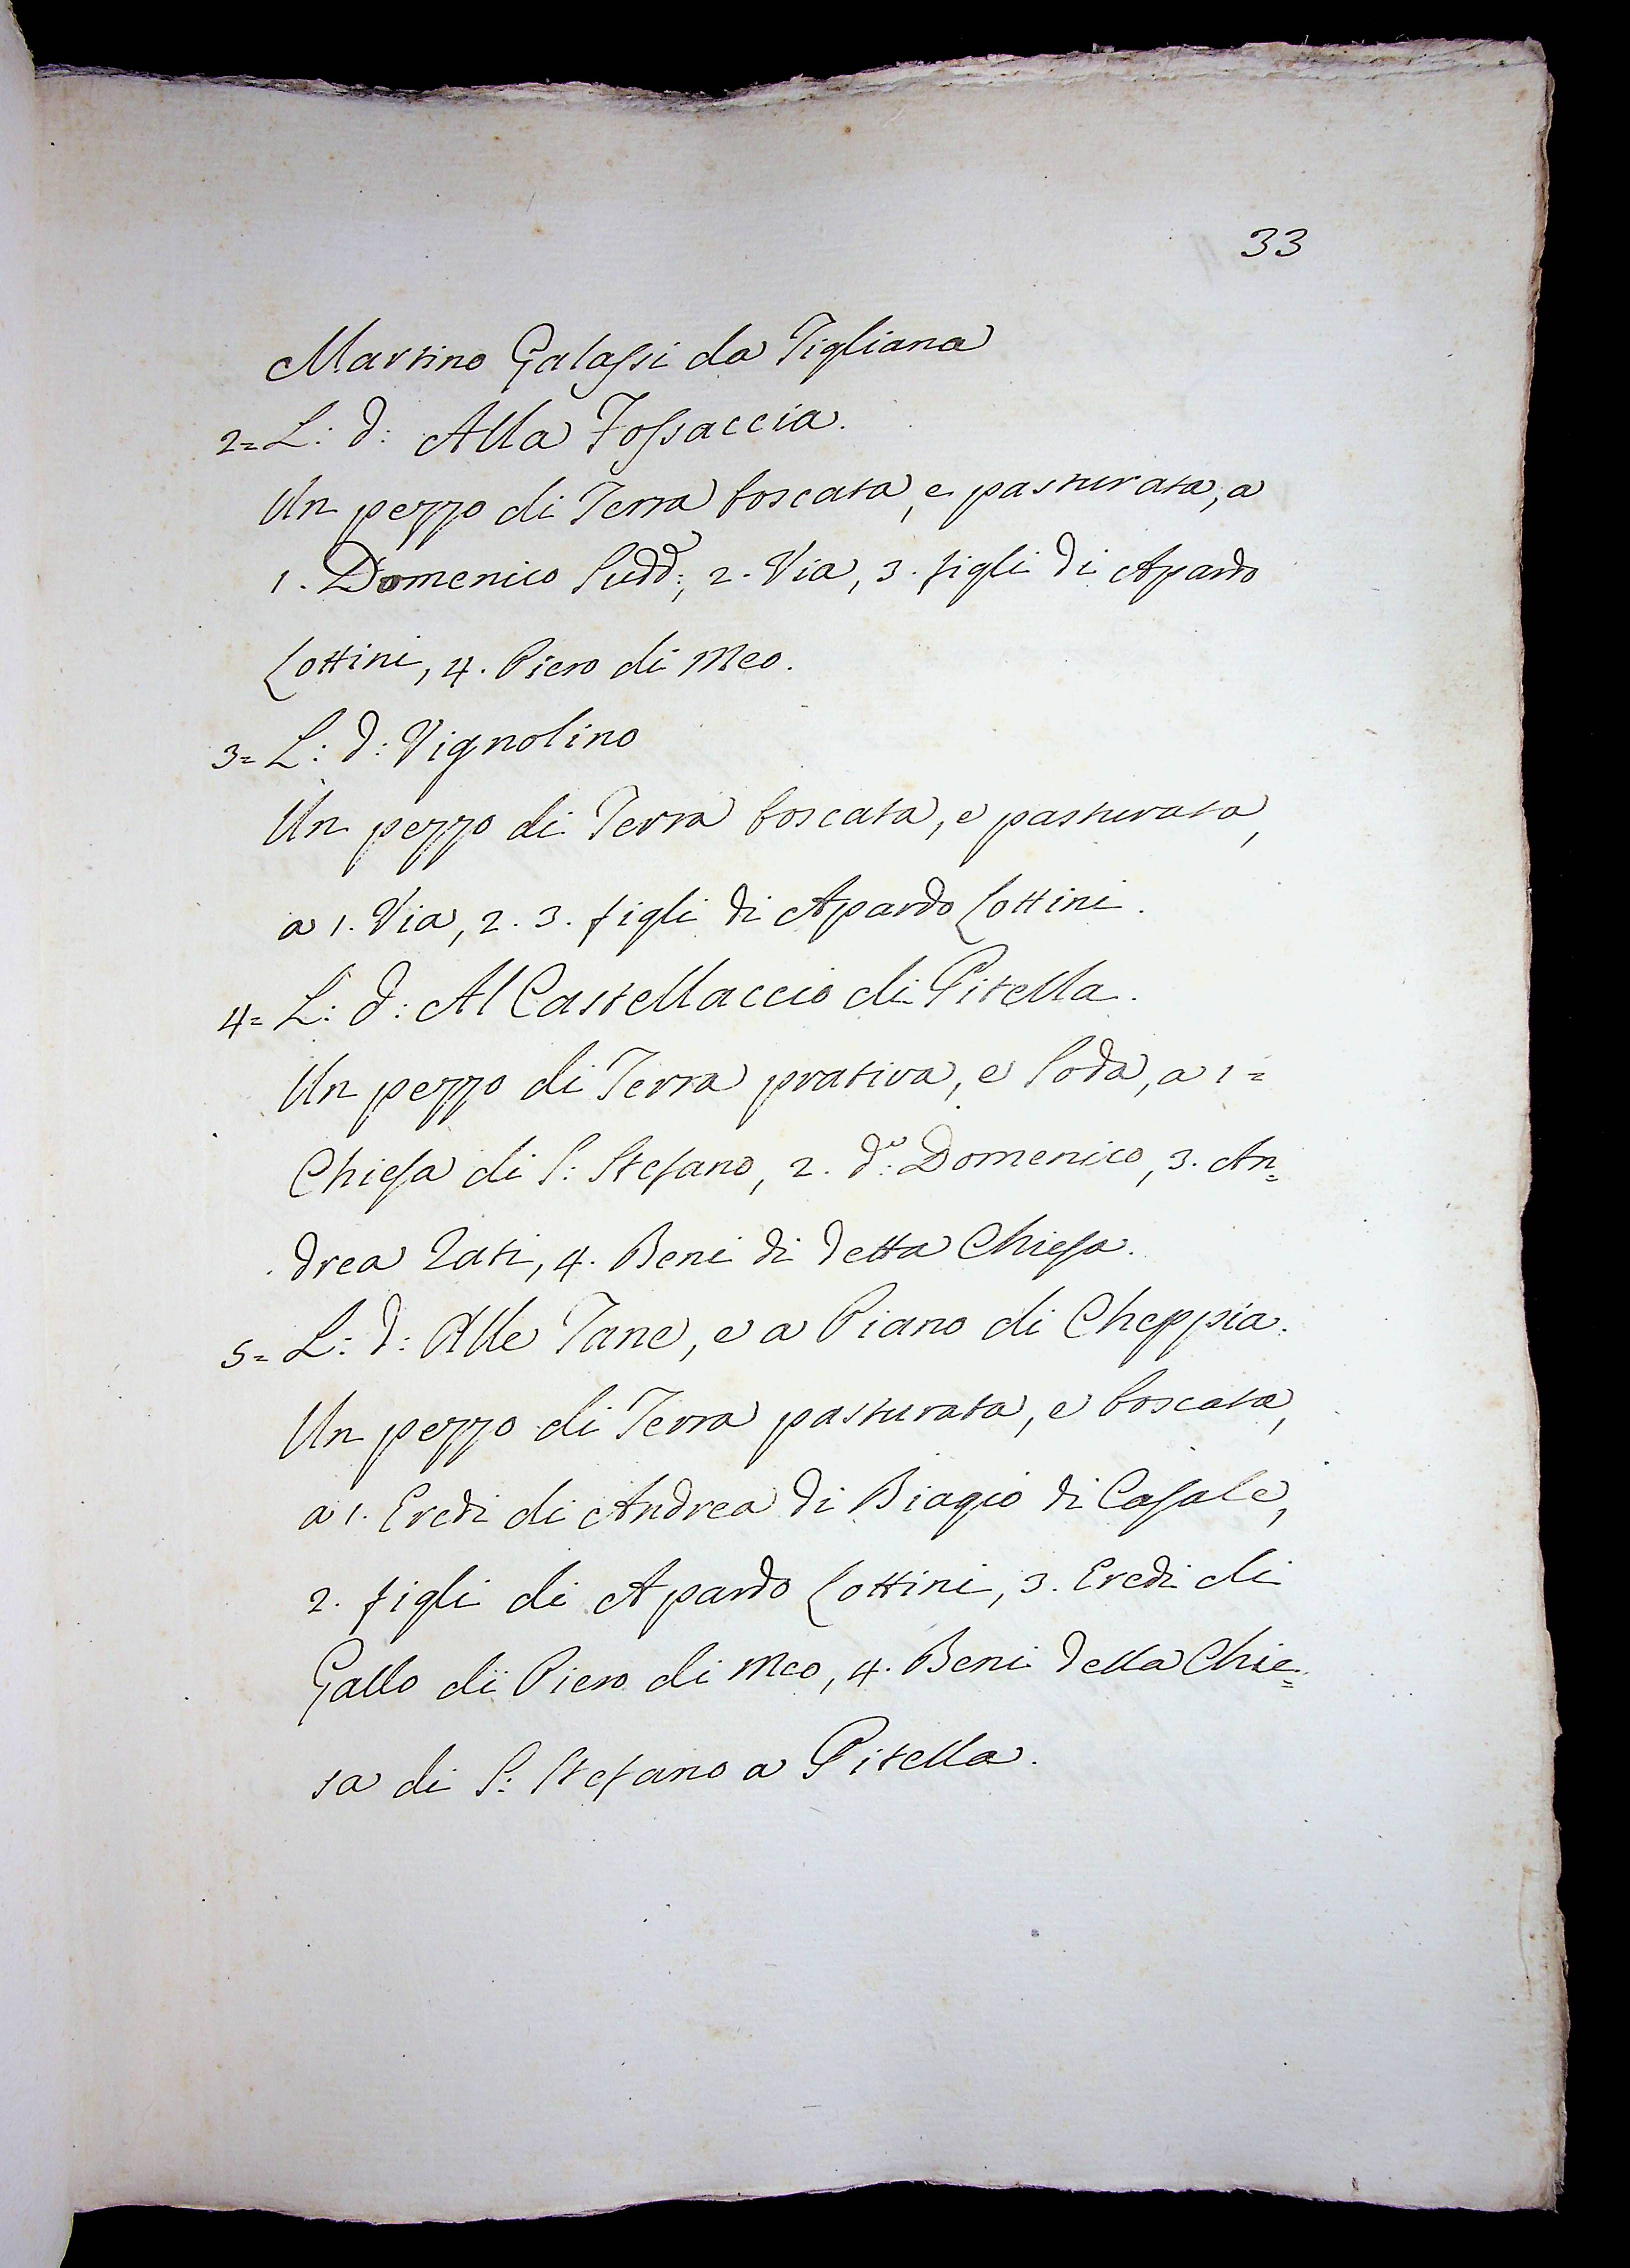 33
Martino Galassi da Tigliana
2= L: d: Alla Fossaccia.
Un pezzo di Terra boscata, e pasturata, a
1. Domenico Sudd:, 2. Via, 3. figli di Apardo
Lottini, 4. Piero di Meo.
3= L: d: Vignolino
Un pezzo di Terra boscata, e pasturata,
a 1. Via, 2. 3. figli di Apardo Lottini.
4= L: d: Al Castellaccio di Pitella.
Un pezzo di Terra prativa, e Soda, a 1=
Chiesa di S: Stefano, 2. do: Domenico, 3. An=
drea Lati, 4. Beni di detta Chiesa.
5= L: d: Alle Tane, e a Piano di Cheppia.
Un pezzo di Terra pasturata, e boscata,
a 1. Eredi di Andrea di Biagio di Casale,
2. figli di Apardo Lottini, 3. Eredi di
Gallo di Piero di Meo, 4. Beni della Chie=
sa di S: Stefano a Pitella.